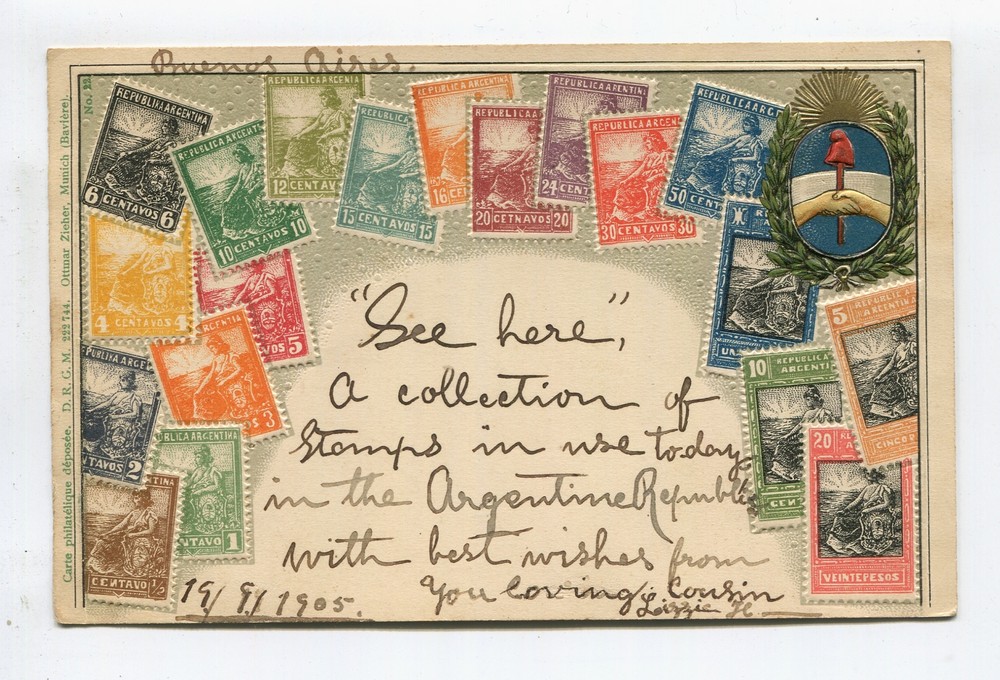 Buenos Aires.
No. 22
Carte philatélique déposée. D. R. G. M. 222 744. Ottmar Zieher, Munich (Bavière).
6 CENTAVOS 6
REPUBLICA ARGEN
10 CENTAVOS 10
REPUBLICA ARGENTI
12 CENTAV
REPUBLICA ARGENTINA
15 CENTAVOS 15
REPUBLICA ARGENTINA
16
REPUBLICA ARGENTINA
20 CETNAVOS 20
REPUBLICA ARENTINA
24 CENT
REPUBLICA ARGENTINA
30 CENTAVOS 30
REPUBLICA ARGENTINA
50 CENTAVOS
4 CENTAVOS 4
AVOS 5
NTIA
3
PUBLICA ARGE
NTAVOS 2
UBLICA ARGENTINA
NTAVO 1
TINA
CENTAVO ½
UN
10 REPUBLICA
ARGENTI
CEN
5 REPUBLICA A
ARGENTINA
CINCOP
20 RE
AR
VEINTEPESOS
"See here,"
A collection of
Stamps in use today
in the Argentine Republi
with best wishes from
You loving Cousin
Lizzie H.
19/9/1905.